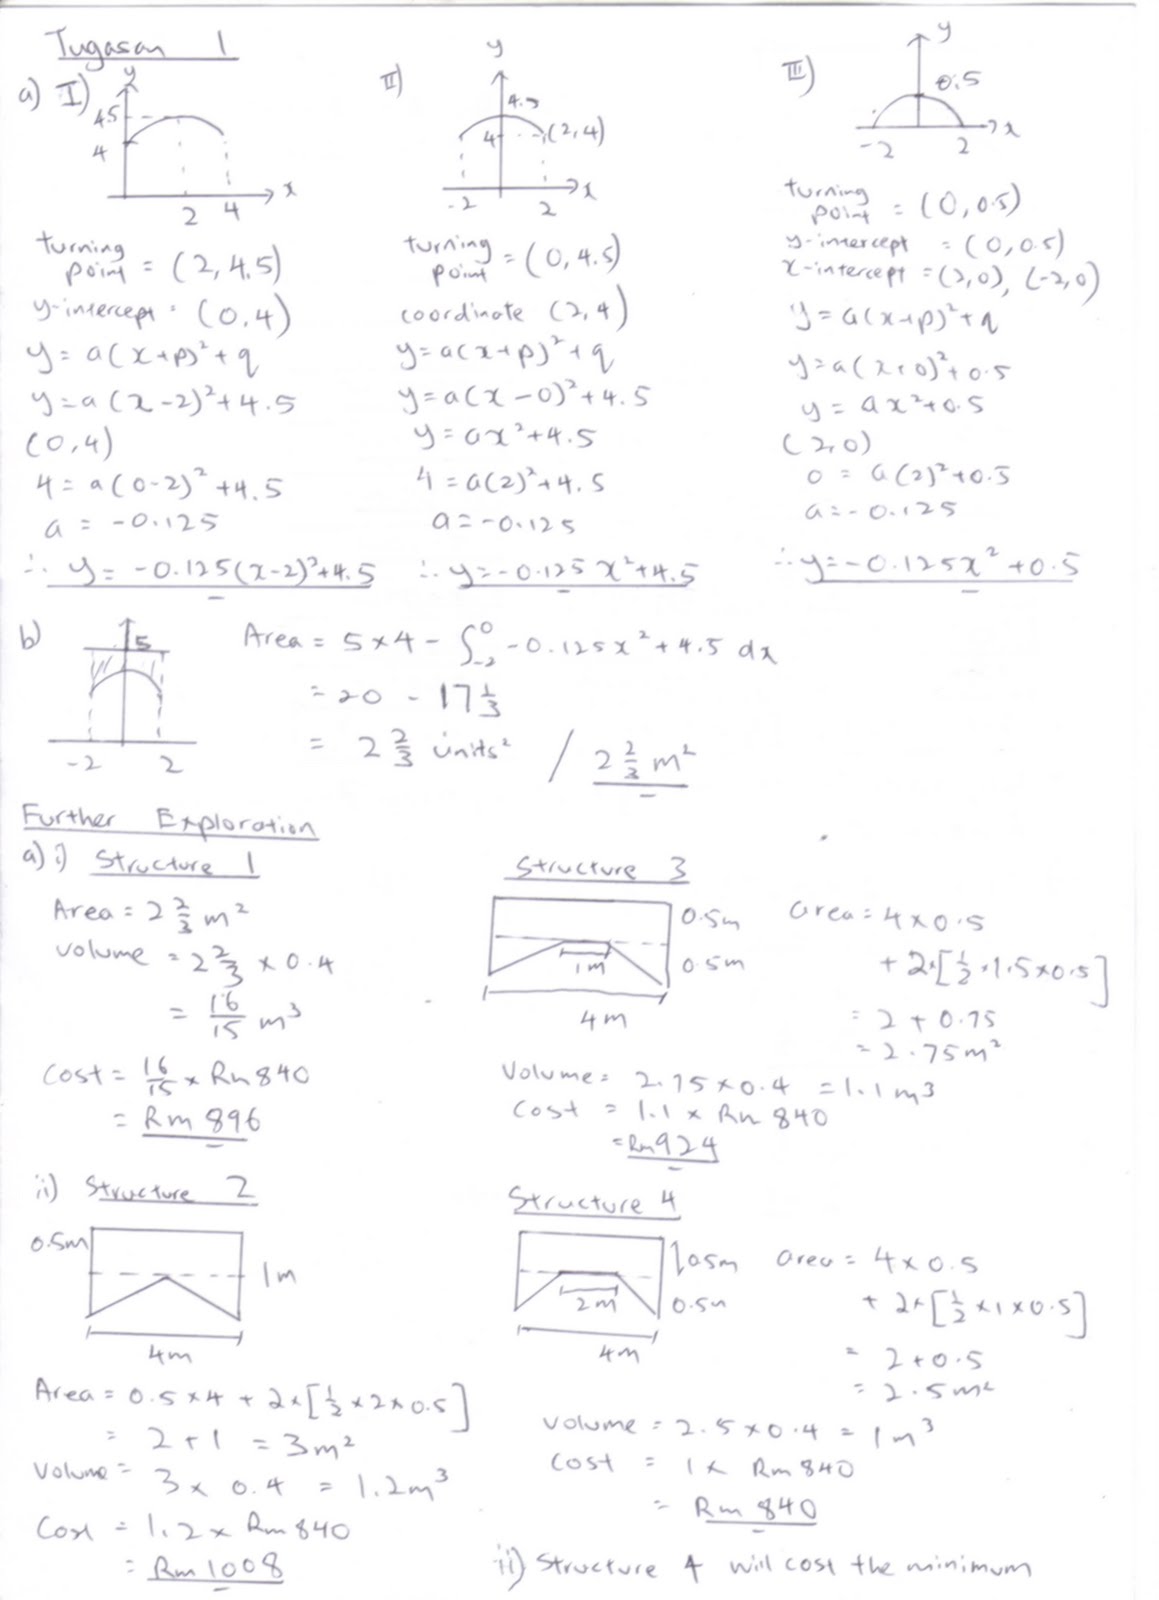 Tugasan 1
a) I)
y
4.5
4
2 4
x
turning
point = (2, 4.5)
y-intercept = (0, 4)
y = a(x+p)² + q
y = a(x-2)² + 4.5
(0, 4)
4 = a(0-2)² + 4.5
a = -0.125
∴ y = -0.125(x-2)² + 4.5
II)
y
4.5
4
(2, 4)
-2 2
x
turning
point = (0, 4.5)
coordinate (2, 4)
y = a(x+p)² + q
y = a(x-0)² + 4.5
y = ax² + 4.5
4 = a(2)² + 4.5
a = -0.125
∴ y = -0.125x² + 4.5
III)
y
0.5
x
-2 2
turning
point = (0, 0.5)
y-intercept = (0, 0.5)
x-intercept = (2, 0), (-2, 0)
y = a(x+p)² + q
y = a(x+0)² + 0.5
y = ax² + 0.5
(2, 0)
0 = a(2)² + 0.5
a = -0.125
∴ y = -0.125x² + 0.5
b)
5
-2 2
Area = 5 × 4 - ∫₋₂⁰ -0.125x² + 4.5 dx
= 20 - 17 1/3
= 2 2/3 units² / 2 2/3 m²
Further Exploration
a) i) Structure 1
Area = 2 2/3 m²
Volume = 2 2/3 × 0.4
= 16/15 m³
Cost = 16/15 × Rm 840
= Rm 896
ii) Structure 2
0.5m
1m
4m
Area = 0.5 × 4 + 2 × [1/2 × 2 × 0.5]
= 2 + 1 = 3m²
Volume = 3 × 0.4 = 1.2m³
Cost = 1.2 × Rm 840
= Rm 1008
Structure 3
0.5m
0.5m
1m
4m
area = 4 × 0.5
+ 2 × [1/2 × 1.5 × 0.5]
= 2 + 0.75
= 2.75m²
Volume = 2.75 × 0.4 = 1.1m³
Cost = 1.1 × Rm 840
= Rm 924
Structure 4
0.5m
0.5m
2m
4m
area = 4 × 0.5
+ 2 × [1/2 × 1 × 0.5]
= 2 + 0.5
= 2.5m²
Volume = 2.5 × 0.4 = 1m³
Cost = 1 × Rm 840
= Rm 840
ii) Structure 4 will cost the minimum